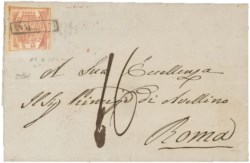 A Sua Eccellenza
Il Sig Principe di Avellino
Roma